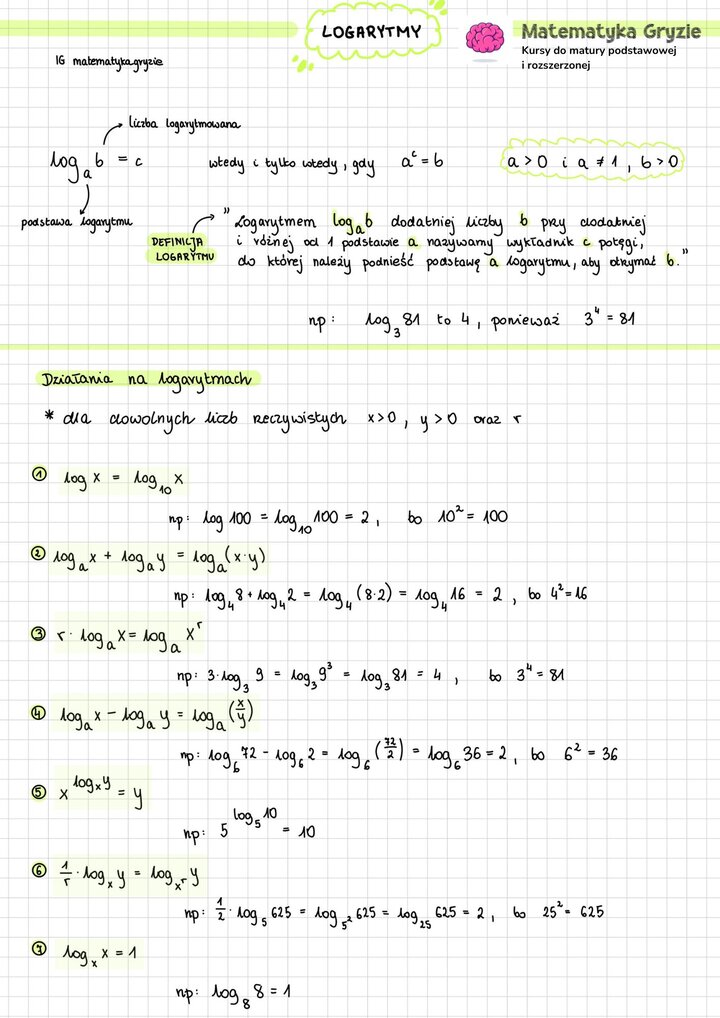 LOGARYTMY
Matematyka Gryzie
Kursy do matury podstawowej
i rozszerzonej
IG matematyka.gryzie
liczba logarytmowana
logₐ b = c wtedy i tylko wtedy, gdy aᶜ = b a > 0 i a ≠ 1, b > 0
podstawa logarytmu
DEFINICJA LOGARYTMU
"Logarytmem logₐb dodatniej liczby b przy dodatniej
i różnej od 1 podstawie a nazywamy wykładnik c potęgi,
do której należy podnieść podstawę a logarytmu, aby otrzymać b."
np: log₃ 81 to 4, ponieważ 3⁴ = 81
Działania na logarytmach
* dla dowolnych liczb rzeczywistych x>0, y>0 oraz r
① log x = log₁₀ x
np: log 100 = log₁₀ 100 = 2, bo 10² = 100
② logₐ x + logₐ y = logₐ (x·y)
np: log₄ 8 + log₄ 2 = log₄ (8·2) = log₄ 16 = 2, bo 4² = 16
③ r · logₐ x = logₐ xʳ
np: 3·log₃ 9 = log₃ 9³ = log₃ 81 = 4, bo 3⁴ = 81
④ logₐ x − logₐ y = logₐ (x/y)
np: log₆ 72 − log₆ 2 = log₆ (72/2) = log₆ 36 = 2, bo 6² = 36
⑤ x^(logₓ y) = y
np: 5^(log₅ 10) = 10
⑥ 1/r · logₓ y = log_(xʳ) y
np: 1/2 · log₅ 625 = log_(5²) 625 = log₂₅ 625 = 2, bo 25² = 625
⑦ logₓ x = 1
np: log₈ 8 = 1